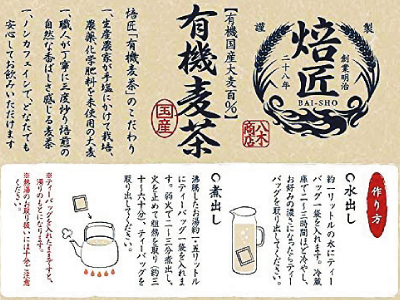 謹製
創業明治二十八年
焙匠
BAI-SHO
八木商店
【有機国産大麦百%】
有機麦茶
国産
焙匠「有機麦茶」のこだわり
一、生産農家が手塩にかけて栽培
農薬・化学肥料を未使用の大麦
一、職人が丁寧に三度炒り焙煎の
自然な香ばしさ感じる麦茶
一、ノンカフェインで、どなたでも
安心してお飲みいただけます
作り方
水出し
約一リットルの水にティー
バッグ一袋を入れます。冷蔵
庫で二〜三時間ほど冷やし、
お好みの濃さになったらティー
バッグを取り出してください。
煮出し
沸騰したお湯約一・五リットル
にティーバッグ一袋を入れま
す。弱火で二〜三分煮出し、
火を止めて粗熱を取り(約三
十〜六十分)、ティーバッグを
取り出してください。
※ティーバッグを入れたままですと、
濁りのもとになります。
※熱湯のお取り扱いには十分ご注意
ください。